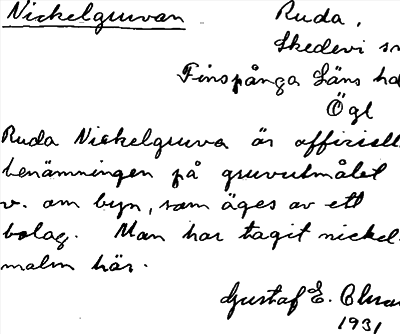 Nickelgruvan
Ruda,
Skedevi sn
Finspånga Läns hd
Ögl
Ruda Nickelgruva är officiell
benämningen på gruvutmålet
v. om byn, som äges av ett
bolag. Man har tagit nickel-
malm här.
Gustaf E.
1931